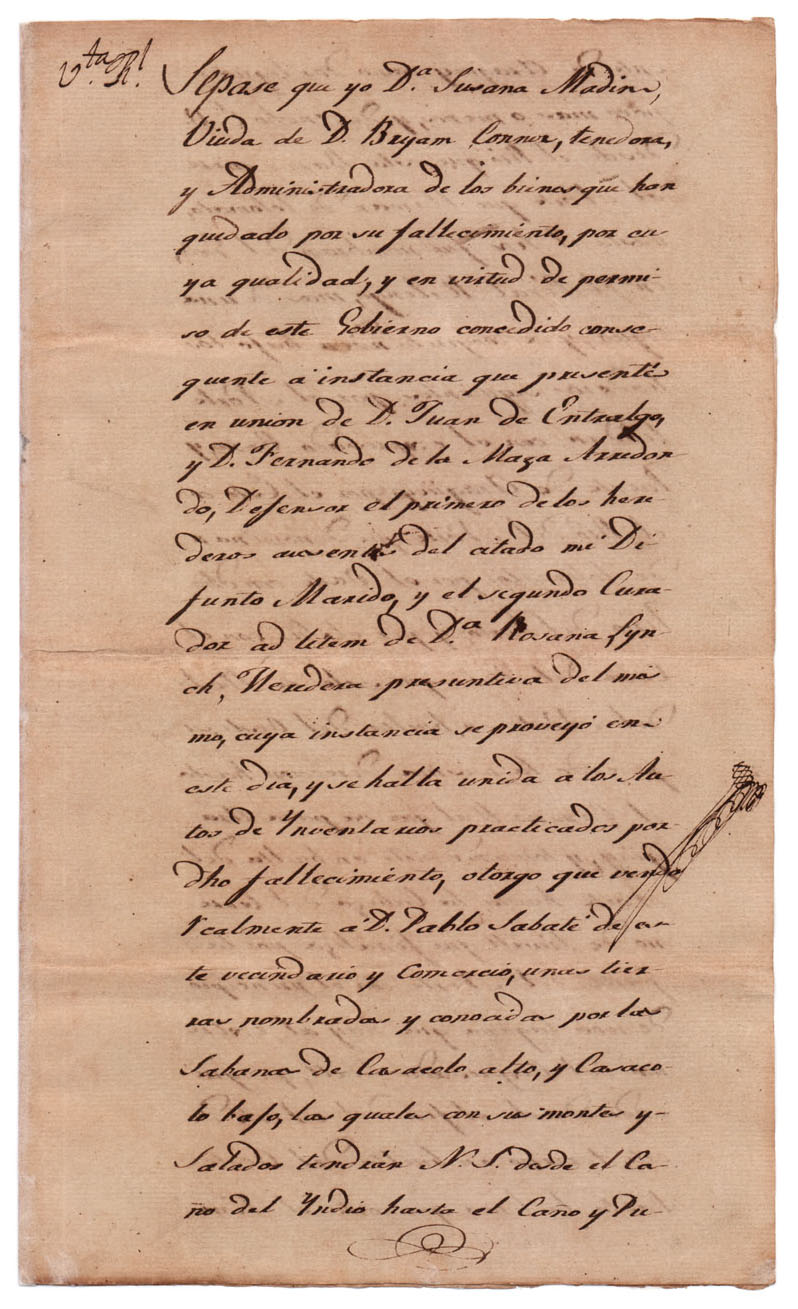 V.ta Rl.
Sepase que yo D.a Susana Madin,
Viuda de D. Bryam Connor, tenedora,
y Administradora de los bienes que han
quedado por su fallecimiento, por cu
ya qualidad, y en virtud de permi-
so de este Gobierno concedido conse-
quente á instancia que presenté
en union de D. Juan de Entralgo,
y D. Fernando de la Maza Arredon-
do, Defensor el primero de los here-
deros ausentes del citado mi Di-
funto Marido, y el segundo Cura-
dor ad litem de D.a Rosana Lyn-
ch, Heredera presuntiva del mis
mo, cuya instancia se proveyó en
este dia, y se halla unida a los Au-
tos de Ynventarios practicados por
dho fallecimiento, otorgo que vendo
realmente á D. Pablo Sabaté de es-
te vecindario y Comercio, unas tier-
ras nombradas y conocidas por las
Sabanas de Casacolo alto, y Casaco-
lo bajo, las quales con sus montes y
Salados tendrán N. S. desde el Ca-
ño del Yndio hasta el Caño y Pu-